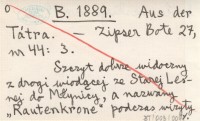 o B. 1889. Aus der
Tatra. — Zipser Bote 27,
nr 44: 3.
Szczyt dobrze widoczny
z drogi wiodącej ze Starej Leś-
nej do Młynicy, a nazwany
„Rautenkrone", podczas wizyty